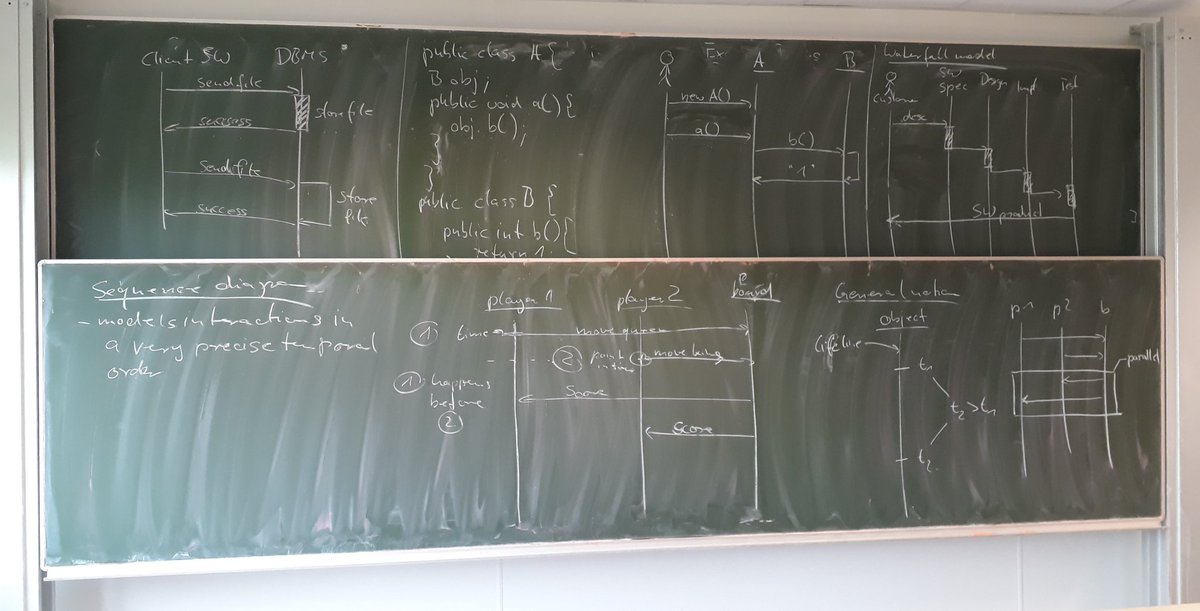 Client SW DBMS
sendfile
storefile
success
sendfile
store
file
success
public class A {
B obj;
public void a() {
obj. b();
}
}
public class B {
public int b() {
return 1.
Ex. A B
new A()
a()
b()
"1"
Waterfall model
SW
spec Design Impl Test
Custome
desc
SW product
Sequence diagram
- models interactions in
a very precise temporal
order
player 1 player 2 board
1 time move queen
2 point
in time move king
1 happens
before
2
Score
Score
General notion
object
lifeline
t1
t2 > t1
t2
p1 p2 b
parallel